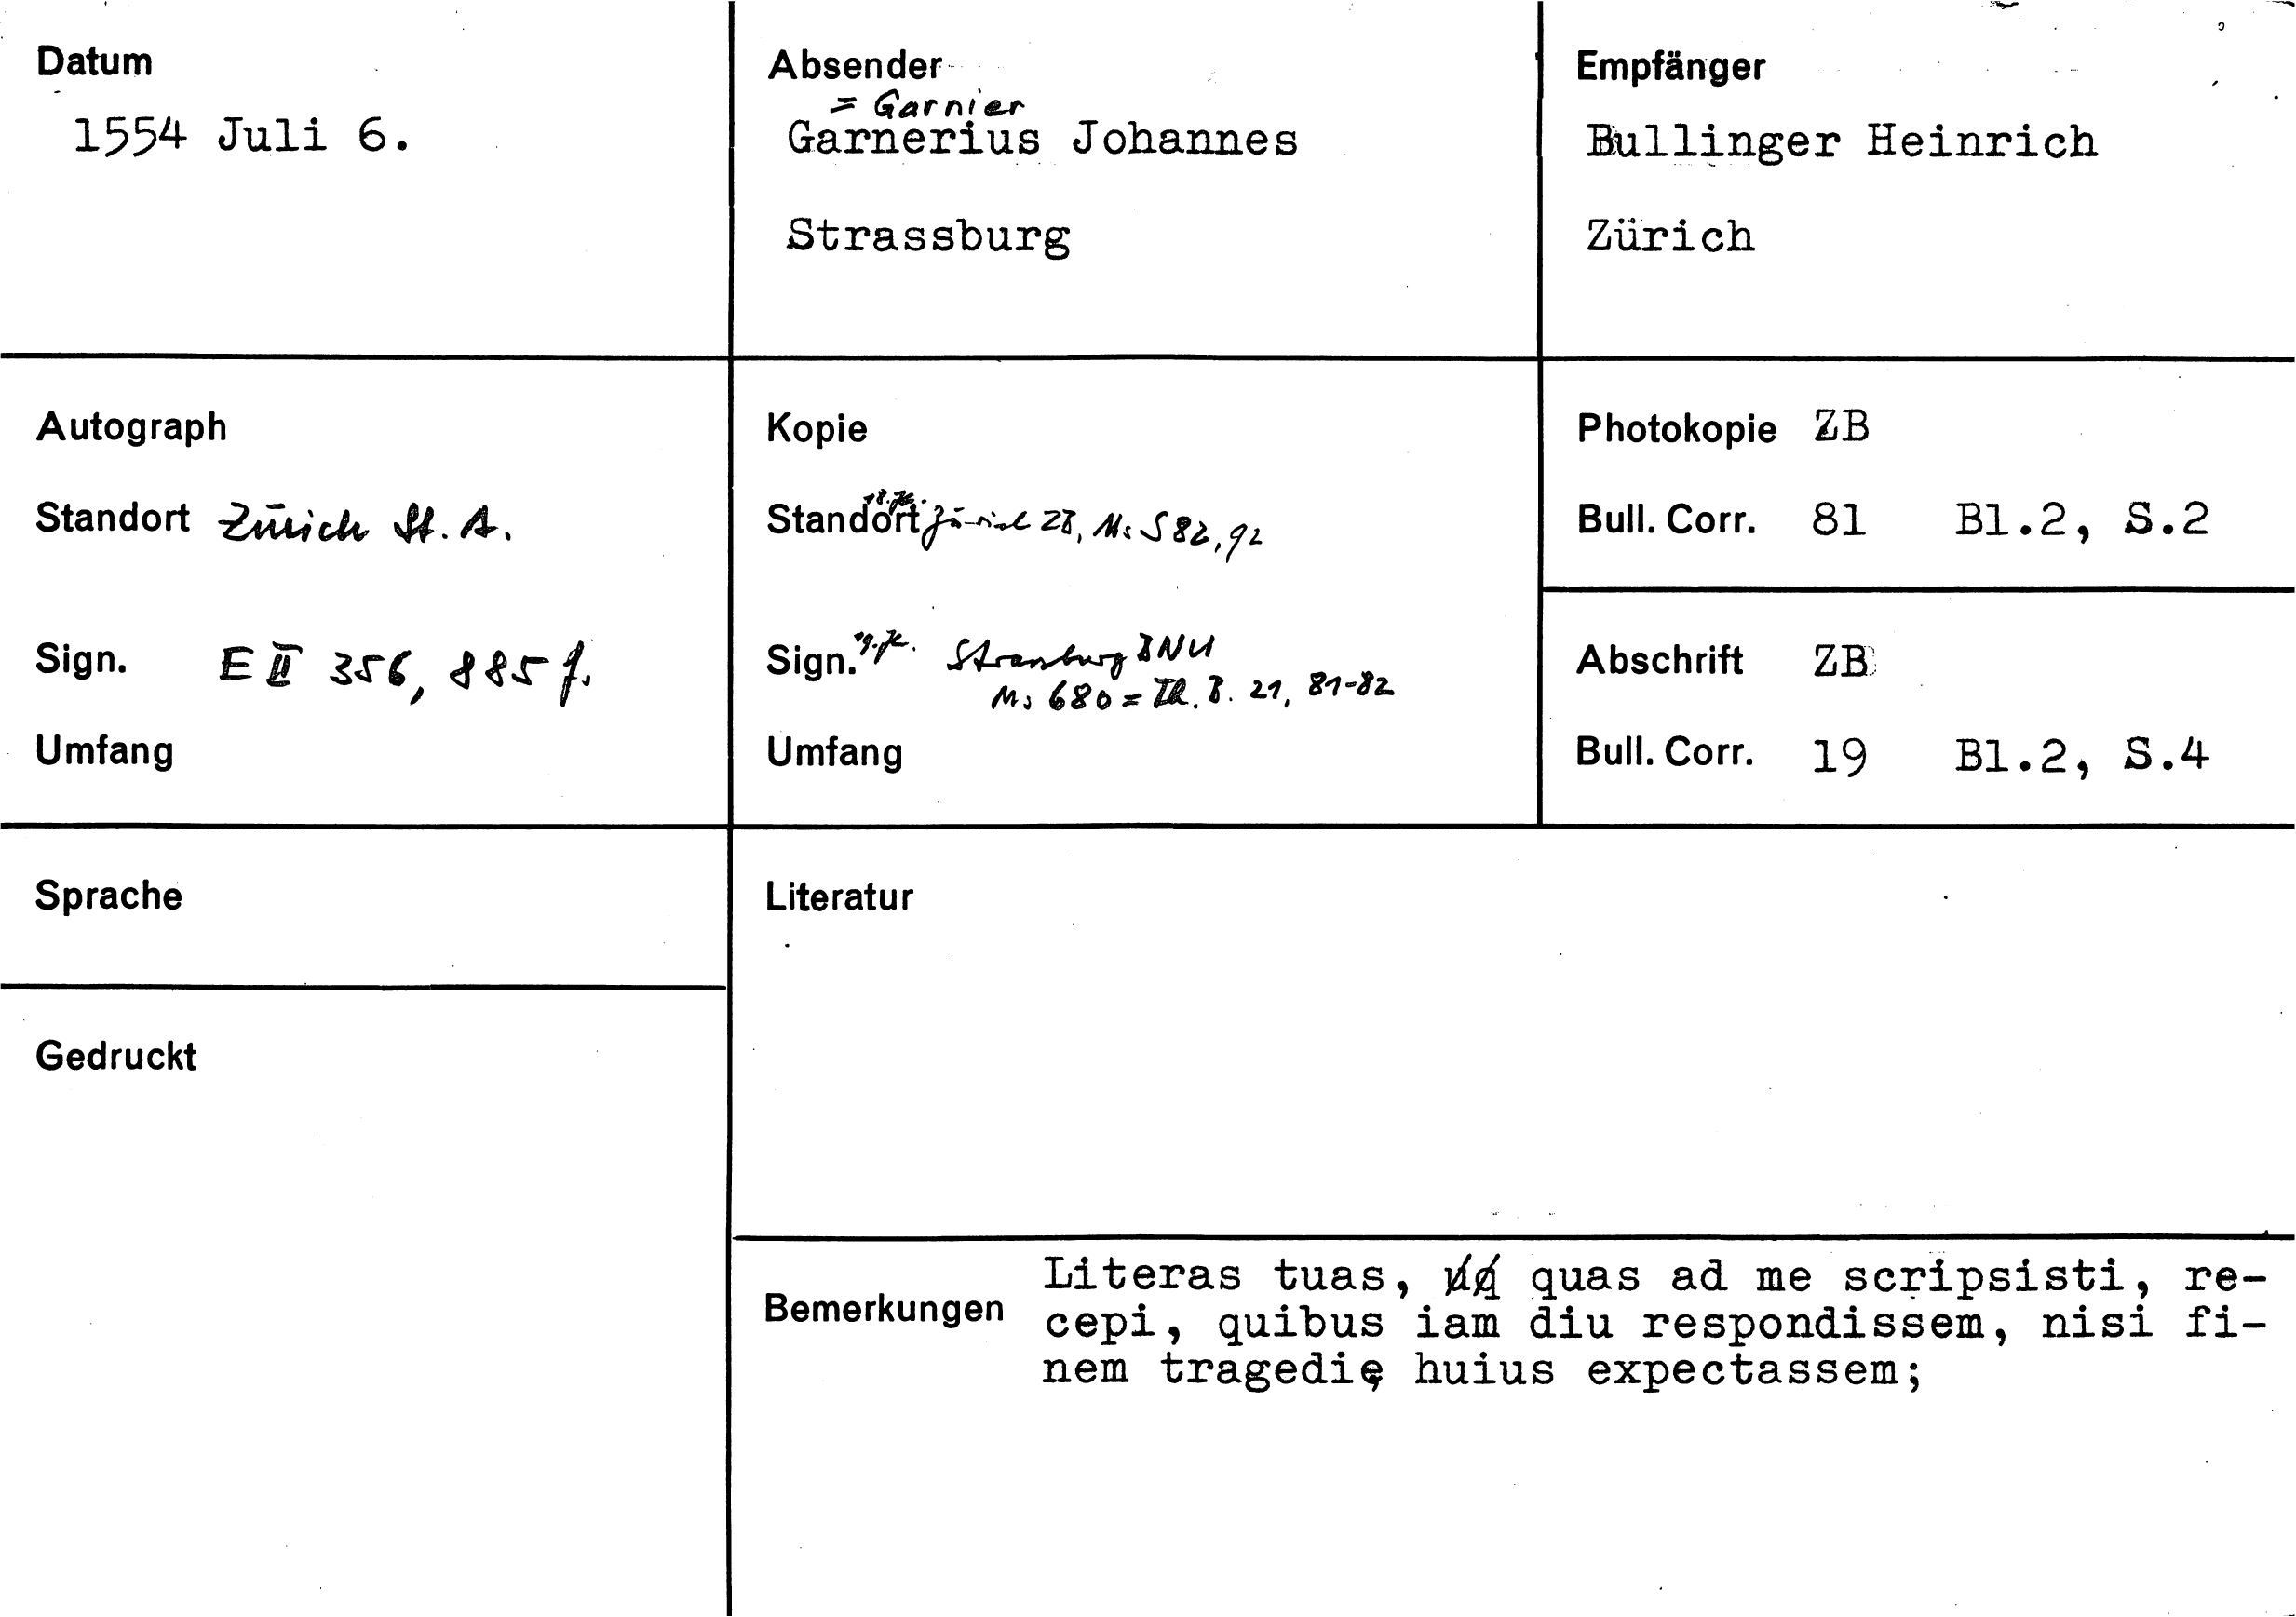 Datum
1554 Juli 6.
Absender
= Garnier
Garnerius Johannes
Strassburg
Empfänger
Bullinger Heinrich
Zürich
Autograph
Standort Zürich St. A.
Sign. E II 356, 885 f.
Umfang
Kopie
18. Jh.
Standort Zürich ZB, Ms S 82, 92
Sign. 19. Jh. Strassburg BNU
Ms 680 = Th. B. 21, 81-82
Umfang
Photokopie ZB
Bull. Corr. 81 Bl.2, S.2
Abschrift ZB
Bull. Corr. 19 Bl.2, S.4
Sprache
Literatur
Gedruckt
Bemerkungen
Literas tuas, quas ad me scripsisti, re-
cepi, quibus iam diu respondissem, nisi fi-
nem tragedię huius expectassem;